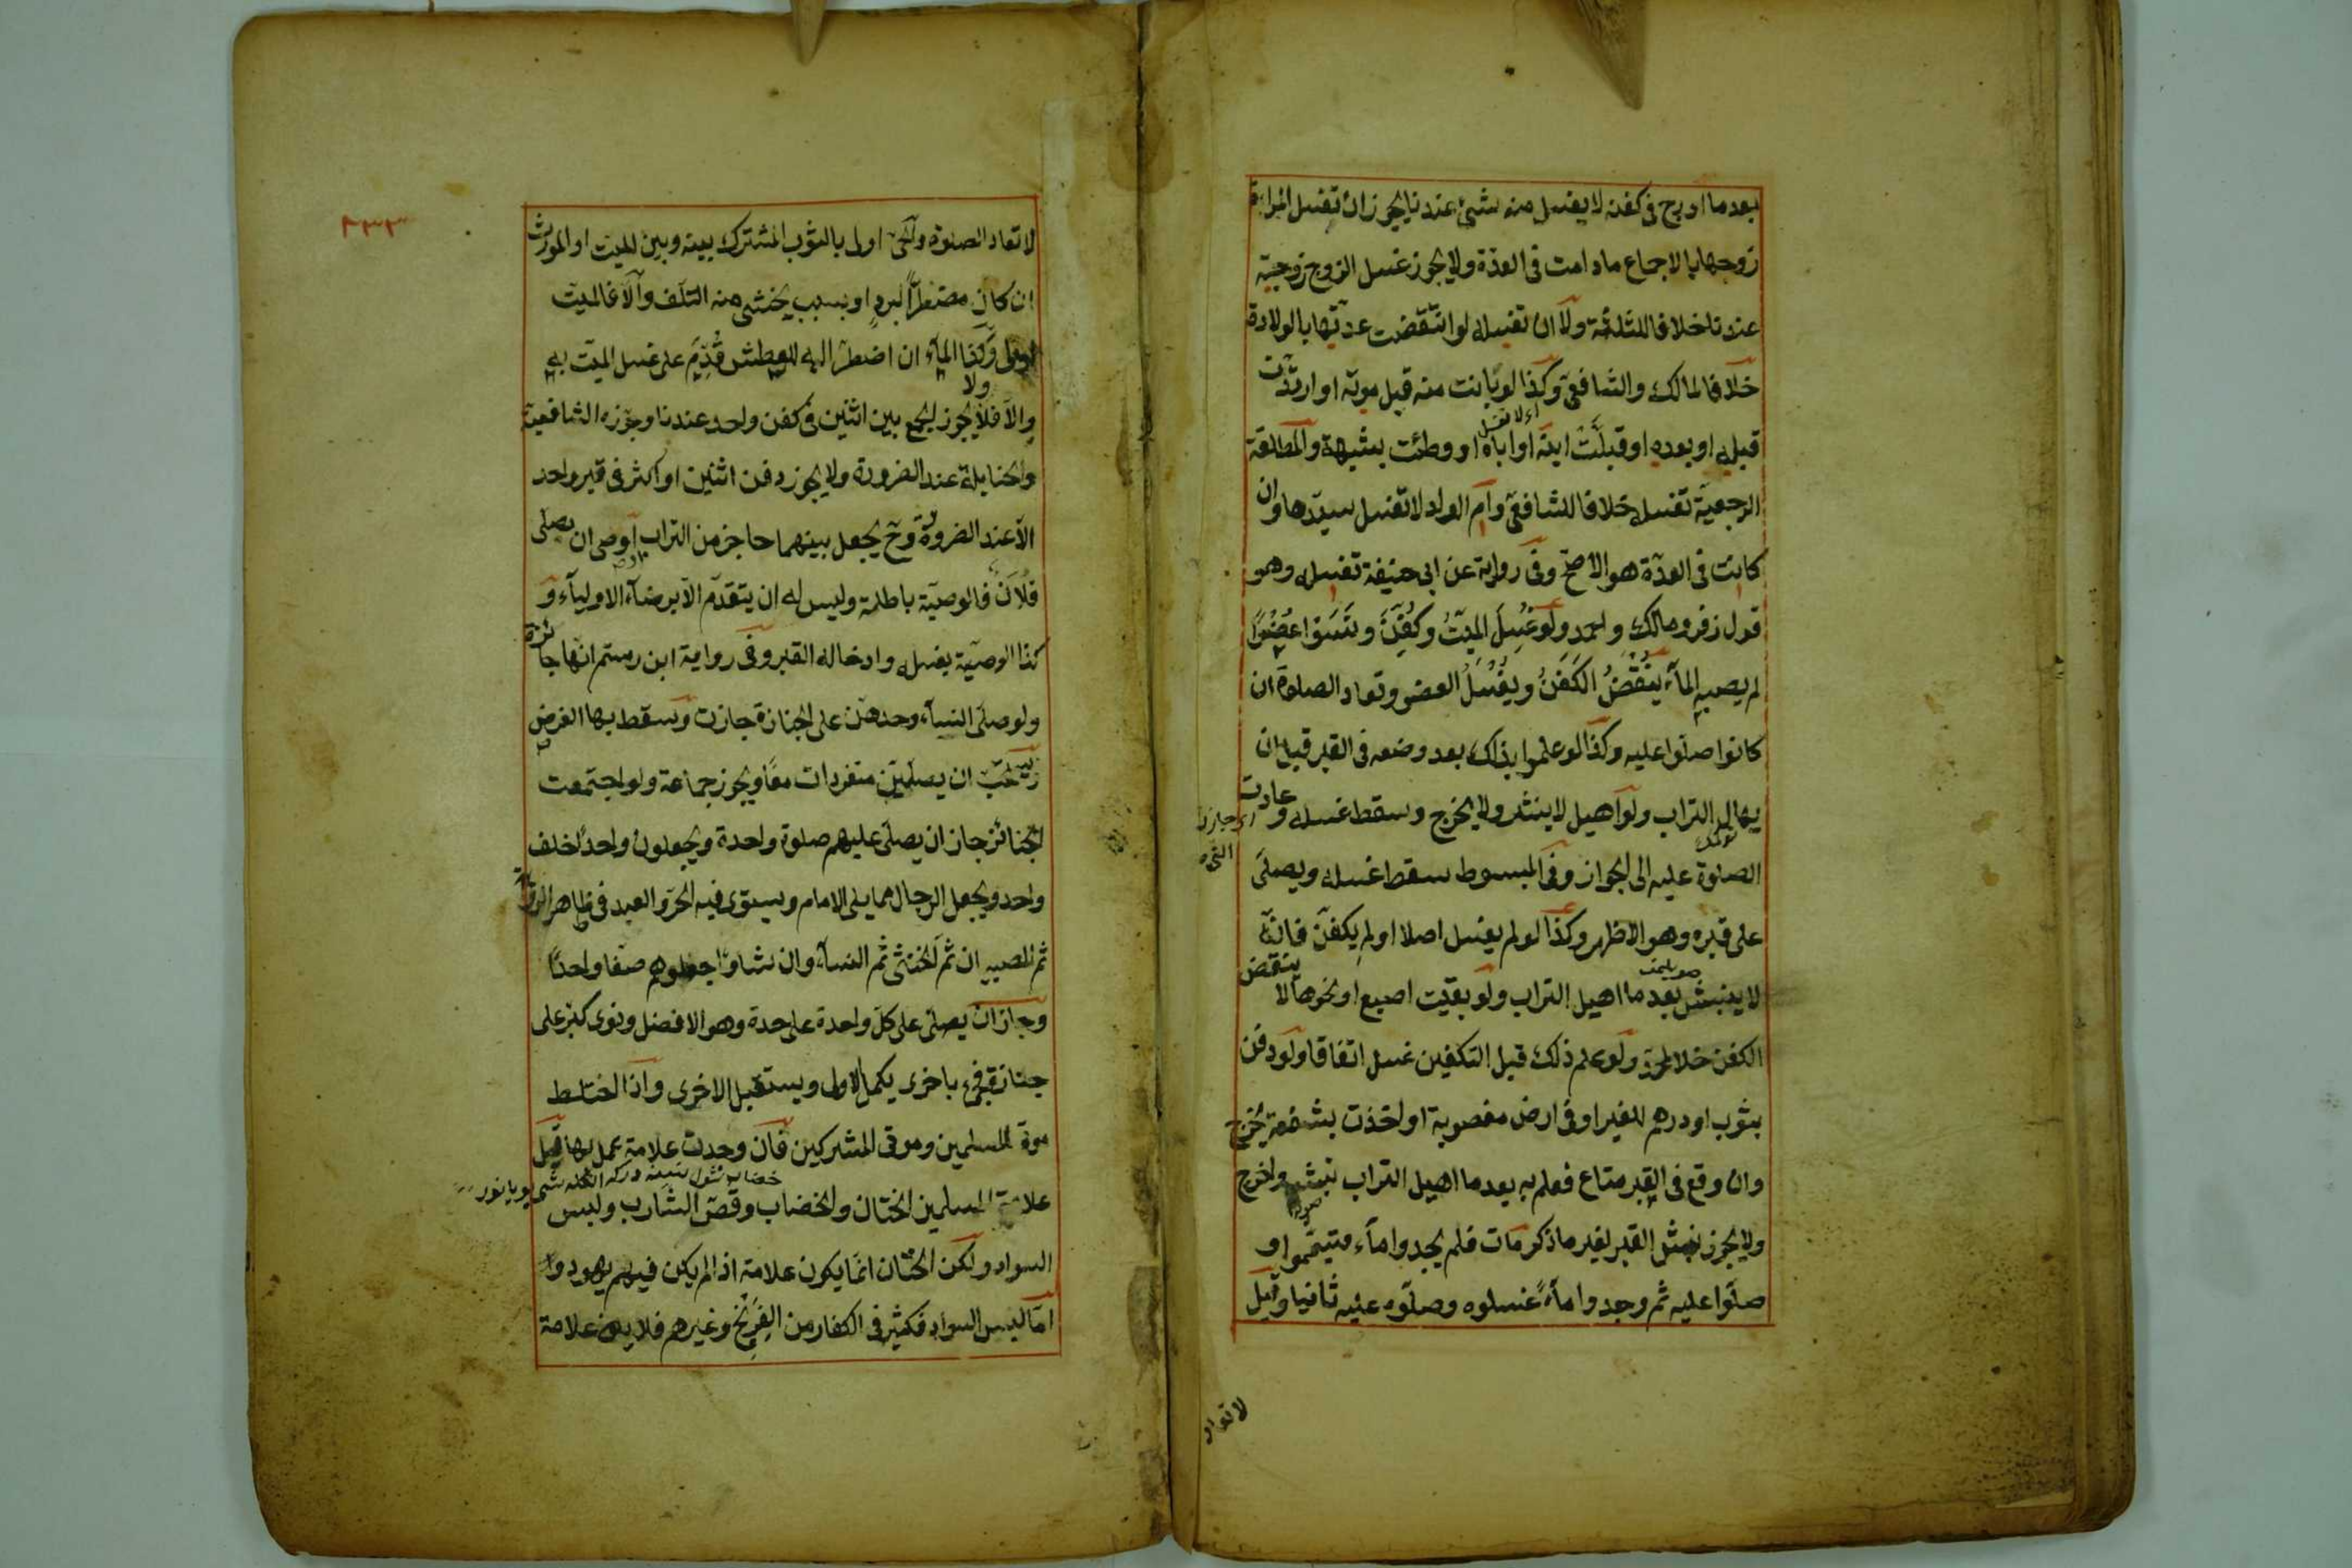 بعدما ادرج فى كفنه لا يغسل منه شئ عندنا يجوز ان تغسل المرأة
زوجها بالاجماع مادامت فى العدّة ولا يجوز غسل الزوج زوجته
عندنا خلافا للثلثة ولا ان تغسله لو انقضت عدتها بالولادة
خلافا لمالك والشافعى وكذا لو بانت منه قبل موته او ارتدّت
اى لا تغسل
قبله او بعده او قبلت ابنه او اباه او وطئت بشبهة والمطلقة
الرجعية تغسله خلافا للشافعى وام الولد لا تغسل سيّدها وان
كانت فى العدّة هو الاصح وفى رواية عن ابى حنيفة تغسله وهو
قول زفر ومالك واحمد ولو غُسِلَ الميّتُ وكُفِّنَ ونَسَوا عُضوًا
لم يصبه الماء يُنْقَضُ الكَفَنُ ويُغْسَلُ العضو وتعاد الصلوة ان
كانوا صلّوا عليه وكذا لو علموا بذلك بعد وضعه فى القبر قبل ان
يهال التراب ولو اهيل لا ينبش ولا يخرج وسقط غسله وعادت
الصلوة عليه الى الجواز وفى المبسوط سقط غسله ويصلّى
على قبره وهو الاظهر وكذا لو لم يغسل اصلا او لم يكفّن فانّه
لا ينبش بعد ما اهيل التراب ولو بقيت اصبع او نحوها لا ينقض
الكفن خلافا لمحمّد ولو علم ذلك قبل التكفين غسل اتفاقا ولو دفن
بثوب او درهم للغير او فى ارض مغصوبة او اخذت بشفعة يُخرج
وان وقع فى القبر متاع فعلم به بعد ما اهيل التراب نبش واخرج
ولا يجوز نبش القبر لغير ما ذكر مات فلم يجدوا ماء فتيمّموا و
صلّوا عليه ثم وجدوا ماءً غسلوه وصلّوه عليه ثانيا وقيل
لا تعاد
٢٣٣
لا تعاد الصلوة والحىّ اولى بالثوب المشترك بينه وبين الميت او الموروث
ان كان مضطرًّا لبردٍ او بسبب يخشى منه التلف والّا فالميّت
اولى وكذا الماء ان اضطرّ اليه للعطش قُدِّمَ على غسل الميّت به
ولا
والا فلا يجوز الجمع بين اثنين فى كفن واحد عندنا وجوّزه الشافعية
والحنابلة عند الضرورة ولا يجوز دفن اثنين او اكثر فى قبر واحد
الّا عند الضرورة وح يجعل بينهما حاجز من التراب اوصى ان يصلّى
فلانٌ فالوصيّة باطلة وليس له ان يتقدّم الّا برضاء الاولياء و
كذا الوصيّة بغسله وادخاله القبر وفى رواية ابن رستم انها جائزة
ولو صلّى النساء وحدهنّ على الجنازة جازت وسقط بها الفرض
ويستحبّ ان يصلّين منفردات معًا ويجوز جماعة ولو اجتمعت
الجنائز جاز ان يصلّى عليهم صلوة واحدة ويجعلون واحدًا خلف
واحد ويجعل الرجال مما يلى الامام ويستوى فيه الحرّ والعبد فى ظاهر الرواية
ثم الصبيه ان ثم الخنثى ثم النساء وان شاؤا جعلوهم صفّا واحدًا
وجاز ان يصلّى على كلّ واحدة على حدة وهو الافضل ولو كبّر على
جنازة فجىء باخرى يكمل الاولى ويستقبل الاخرى واذا اختلط
موتى المسلمين وموتى المشركين فان وجدت علامة عمل بها قيل
علامة المسلمين الختان والخضاب وقصّ الشارب ولبس
السواد ولكن الختان انّما يكون علامة اذا لم يكن فيهم يهود وا
امّا لبس السواد فكثير فى الكفار من الفِرِنْج وغيرهم فلا يكون علامة